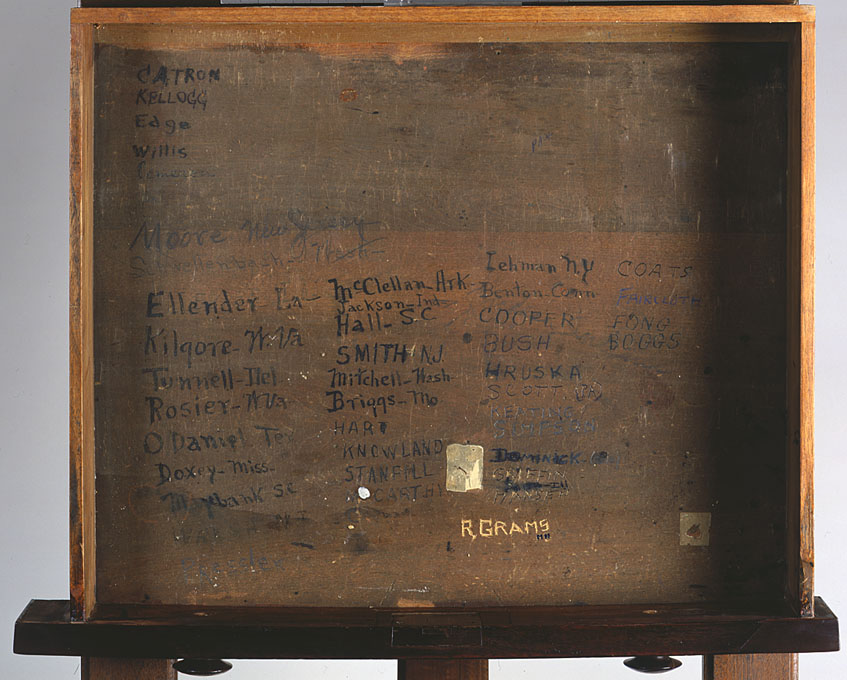 CATRON
KELLOGG
Edge
Willis
Cameron
Moore New Jersey
Schwellenbach - Wash -
Ellender La -
Kilgore - W. Va
Tunnell - Del
Rosier - W Va
O'Daniel Tex
Doxey - Miss -
Maybank S.C
Pressler
McClellan - Ark -
Jackson - Ind -
Hall - S.C
SMITH N.J.
Mitchell - Wash -
Briggs - Mo
HART
KNOWLAND
STANFILL
MCCARTHY
Lehman N.Y
Benton - Conn -
COOPER
BUSH
HRUSKA
SCOTT (PA)
KEATING
Dominick
HANSEN
COATS
FAIRCLOTH
FONG
BOGGS
R. GRAMS
MN